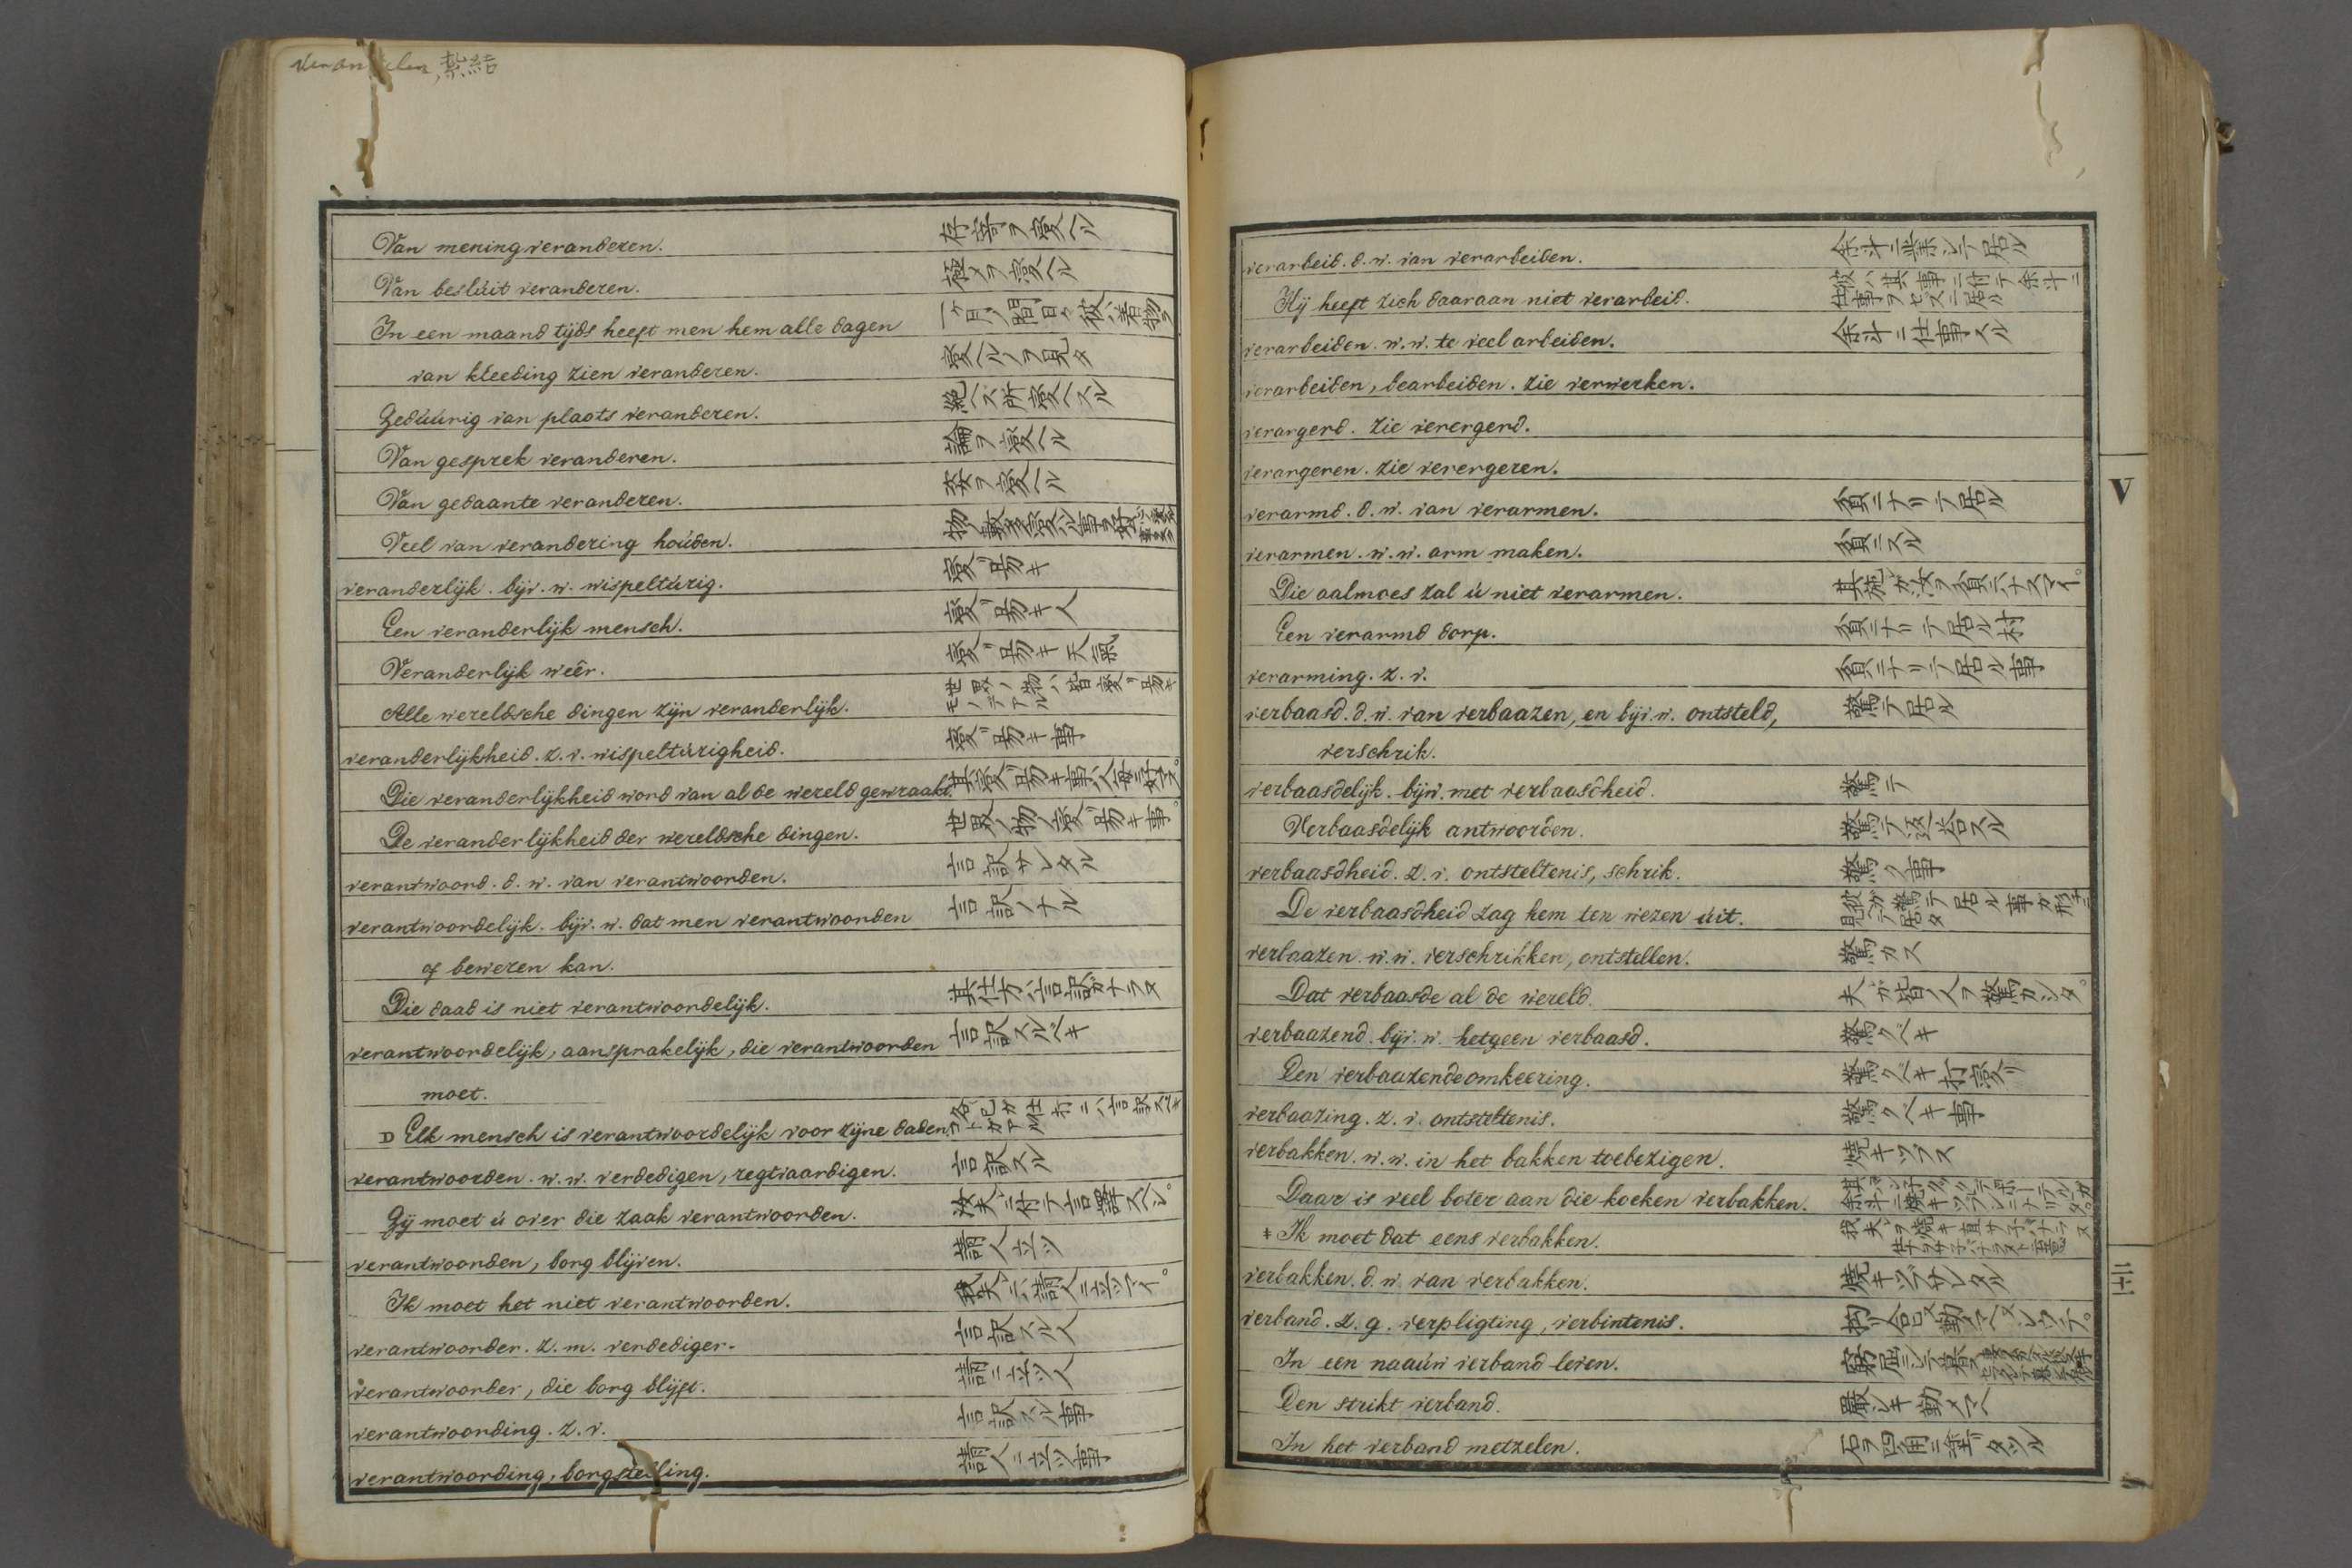 紮結
Van mening veranderen. 存寄ヲ変ヘル
Van besluit veranderen. 極メヲ変ヘル
In een maand tijds heeft men hem alle dagen 一ケ月ノ間日々彼ハ着物ヲ
van kleeding zien veranderen. 変ヘルノヲ見タ
Gedúúrig van plaats veranderen. 絶ヘズ所変ヘスル
Van gesprek veranderen. 論ヲ変ヘル
Van gedaante veranderen. 姿ヲ変ヘル
Veel van verandering houden.
veranderlijk. bijv. w. wispeltúrig. 変リ易キ
Een veranderlijk mensch. 変リ易キ人
Veranderlijk weêr. 変リ易キ天氣
Alle wereldsche dingen zijn veranderlijk. 世界ノ物ハ皆変リ易キモノデアル
veranderlijkheid. z. v. wispeltúrigheid. 変リ易キ事
Die veranderlijkheid word van al de wereld gewraakt. 其変リ易キ事ハ人毎ニ
De veranderlijkheid der wereldsche dingen. 世界ノ物ノ変リ易キ事。
verantwoord. d. w. van verantwoorden. 言訳サレタル
verantwoordelijk. bijv. w. dat men verantwoorden 言訳ノナル
of beweren kan.
Die daad is niet verantwoordelijk. 其仕方ハ言訳ガナラヌ
verantwoordelijk, aansprakelijk, die verantwoorden 言訳スルベキ
moet.
D Elk mensch is verantwoordelijk voor zijne daden.
verantwoorden. w. w. verdedigen, regtvaardigen. 言訳スル
Gij moet ú over die zaak verantwoorden. 汝夫ニ付テ言譯スベシ。
verantwoorden, borg blijven. 請人立ツ
Ik moet het niet verantwoorden. 我夫ニハ請人ニ立ツマイ。
verantwoorder. z. m. verdediger. 言訳スル人
verantwoorder, die borg blijft. 請ニ立ツ人
verantwoording. z. v. 言訳スル事
verantwoording, borgstelling. 請人ニ立ツ事
verarbeid. d. w. van verarbeiden. 余斗ニ業シテ居ル
Hij heeft zich daaraan niet verarbeid. 彼ハ其事ニ付テ余斗ニ仕事ヲセズニ居ル
verarbeiden. w. w. te veel arbeiden. 余斗ニ仕事スル
verarbeiden, bearbeiden. zie verwerken.
verargerd. zie verergerd.
verargeren. zie verergeren.
verarmd. d. w. van verarmen. 貧ニナリテ居ル
verarmen. w. w. arm maken. 貧ニスル
Die aalmoes zal ú niet verarmen. 其施ガ汝ヲ貧ニハナスマイ。
Een verarmd dorp. 貧ニナリテ居ル村
verarming. z. v. 貧ニナリテ居ル事
verbaasd. d. w. van verbaazen, en bijv. w. ontsteld, 驚テ居ル
verschrik.
verbaasdelijk. bijw. met verbaasdheid. 驚テ
Verbaasdelijk antwoorden. 驚テ返答スル
verbaasdheid. z. v. ontsteltenis, schrik. 驚ク事
De verbaasdheid zag hem ten wezen úit. 彼ガ驚テ居ル事ガ形ニ見テ居タ
verbaazen. w. w. verschrikken, ontstellen. 驚カス
Dat verbaasde al de wereld. 夫ガ皆ノ人ヲ驚カシタ。
verbaazend. bijv. w. hetgeen verbaasd. 驚クベキ
Den verbaazende omkeering. 驚クベキ打変リ
verbaazing. z. v. ontsteltenis. 驚クベキ事
verbakken. w. w. in het bakken toebezigen. 焼キツブス
Daar is veel boter aan die koeken verbakken.
‡ Ik moet dat eens verbakken.
verbakken. d. w. van verbakken. 焼キツブサレタル
verband. z. g. verpligting, verbintenis.
In een naaúw verband leven.
Den strikt verband. 嚴シキ勤メマヘ
In het verband metzelen. 石ヲ四角ニ
V